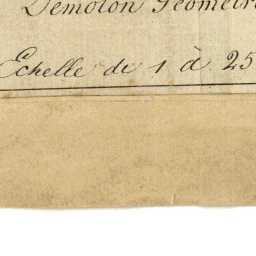 Demolon Géomètre
Echelle de 1 à 25